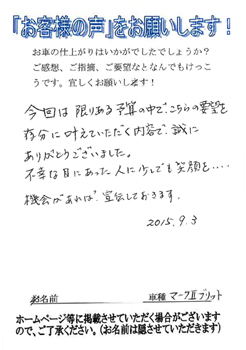 『お客様の声』をお願いします！
お車の仕上がりはいかがでしたでしょうか？
ご感想、ご指摘、ご要望などなんでもけっこ
うです。宜しくお願いします！
今回は限りある予算の中で、こちらの要望を
存分に叶えていただく内容で、誠に
ありがとうございました。
不幸な目にあった人に少しでも笑顔を‥‥
機会があれば、宣伝しておきます。
2015.9.3
お名前 車種 マークⅡブリット
ホームページ等に掲載させていただく場合がございます
ので、ご了承ください。（お名前は隠させていただきます）